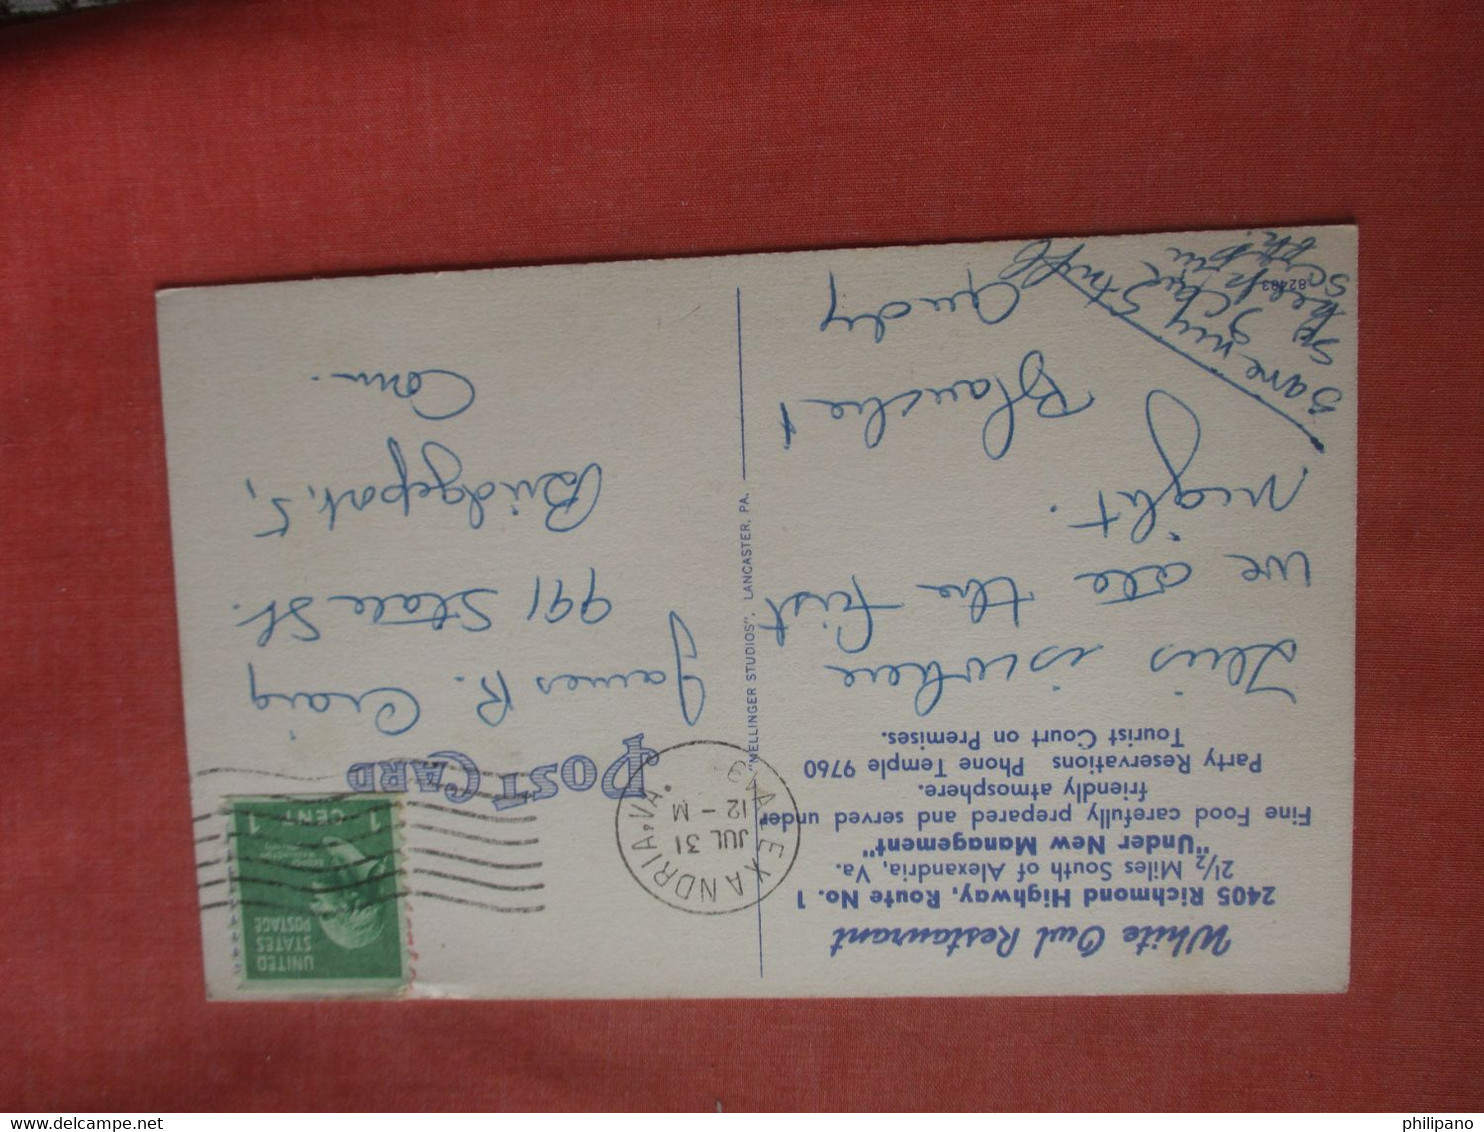 White Owl Restaurant
2405 Richmond Highway, Route No. 1
2½ Miles South of Alexandria, Va.
"Under New Management"
Fine Food carefully prepared and served under
friendly atmosphere.
Party Reservations Phone Temple 9760
Tourist Court on Premises.
This is where
we ate the first
night.
Blanche &
Andy
Save my Stuff
I can
keep
Scrap
82483
"MELLINGER STUDIOS", LANCASTER, PA.
POST CARD
ALEXANDRIA, VA.
JUL 31
12 - M
UNITED
STATES
POSTAGE
1 CENT 1
James R. Craig
991 State St.
Bridgeport, 5,
Conn.
philipano